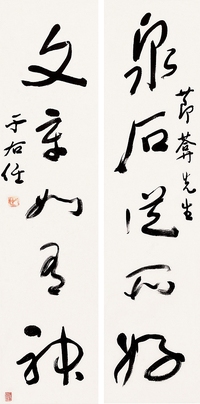 泉石從所好
節菴先生
文章如有神
于右任